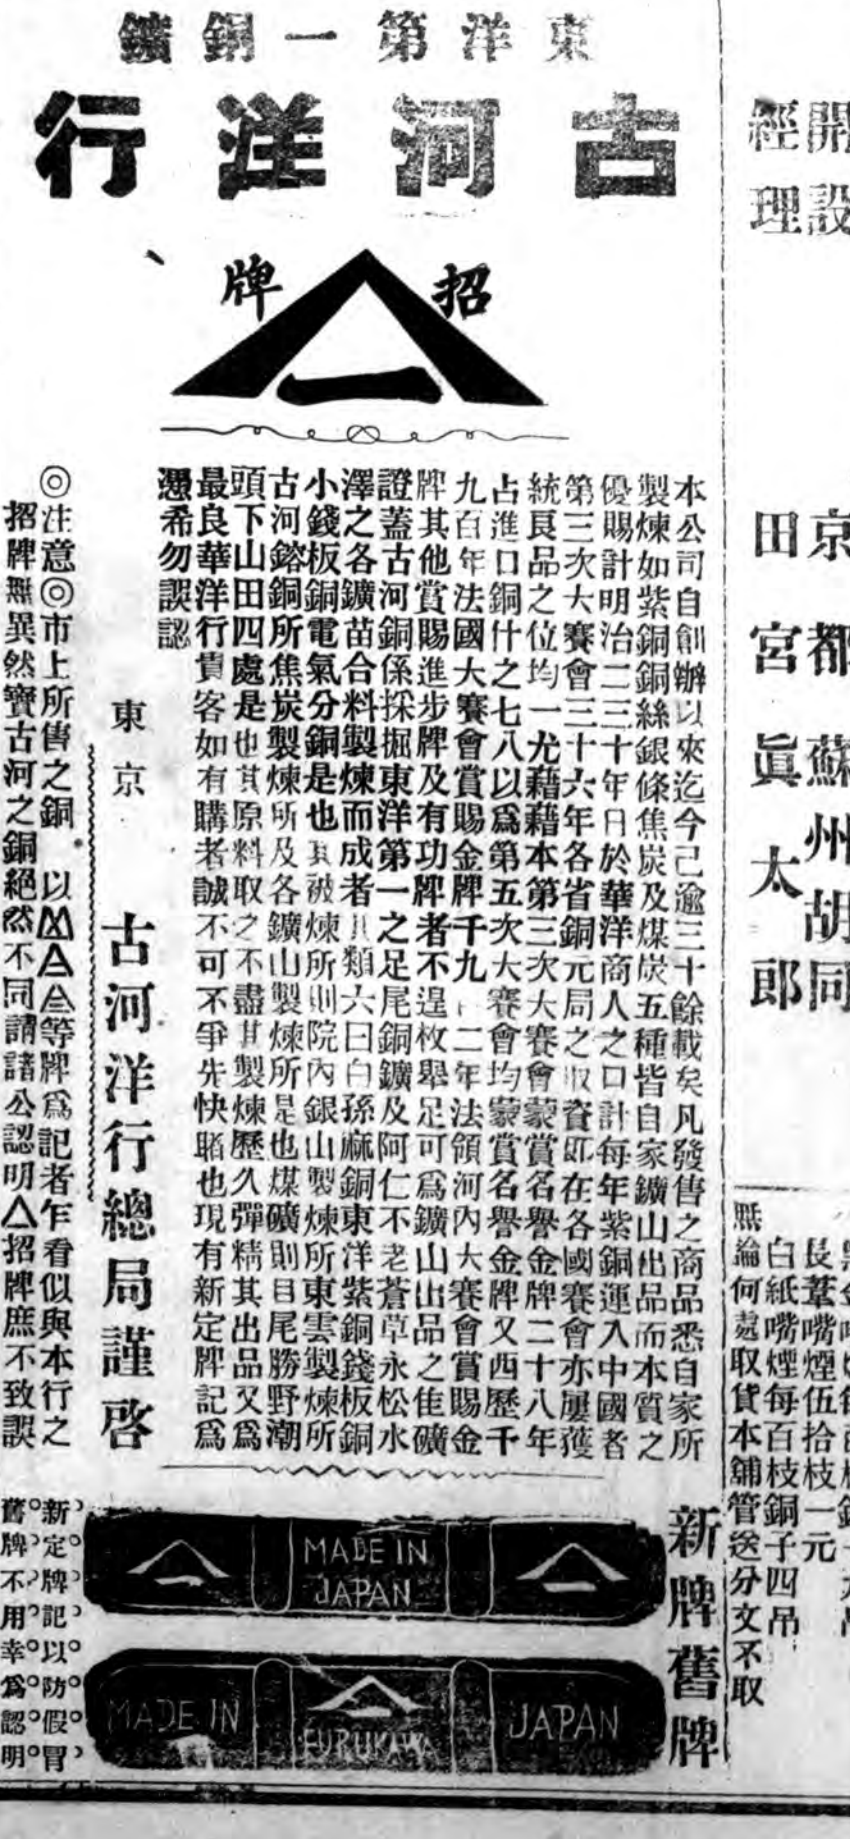 東洋第一銅鑛
古河洋行
招牌
本公司自創辦以來迄今已逾三十餘載矣凡發售之商品悉自家所
製煉如紫銅銅絲銀條焦炭及煤炭五種皆自家鑛山出品而本質之
優賜計明治二三十年月於華洋商人之口計每年紫銅運入中國者
第三次大賽會三十六年各省銅元局之取資即在各國賽會亦屢獲
統良品之位均一尤藉藉本第三次大賽會蒙賞名譽金牌二十八年
占進口銅什之七八以爲第五次大賽會均蒙賞名譽金牌又西歷千
九百年法國大賽會賞賜金牌千九 二年法領河內大賽會賞賜金
牌其他賞賜進步牌及有功牌者不遑枚舉足可爲鑛山出品之佳礦
證蓋古河銅係採掘東洋第一之足尾銅鑛及阿仁不老蒼草永松水
澤之各鑛苗合料製煉而成者其類六曰白孫麻銅東洋紫銅錢板銅
小錢板銅電氣分銅是也其被煉所則院內銀山製煉所東雲製煉所
古河鎔銅所焦炭製煉所及各鑛山製煉所是也煤礦則目尾勝野潮
頭下山田四處是也其原料取之不盡其製煉歷久彈精其出品又爲
最良華洋行貴客如有購者誠不可不爭先快睹也現有新定牌記爲
憑希勿誤認
東京 古河洋行總局謹啓
◎注意◎市上所售之銅 以 等牌爲記者乍看似與本行之
招牌無異然實古河之銅絕然不同請諸公認明 招牌庶不致誤
新牌舊牌
MADE IN
JAPAN
MADE IN
FURUKAWA
JAPAN
新定牌記以防假冒
舊牌不用幸爲認明
開設
經理
京都蘇州胡同
田宮眞太郎
長葦嘴煙伍拾枝一元
白紙嘴煙每百枝銅子四吊
無論何處取貨本舖管送分文不取